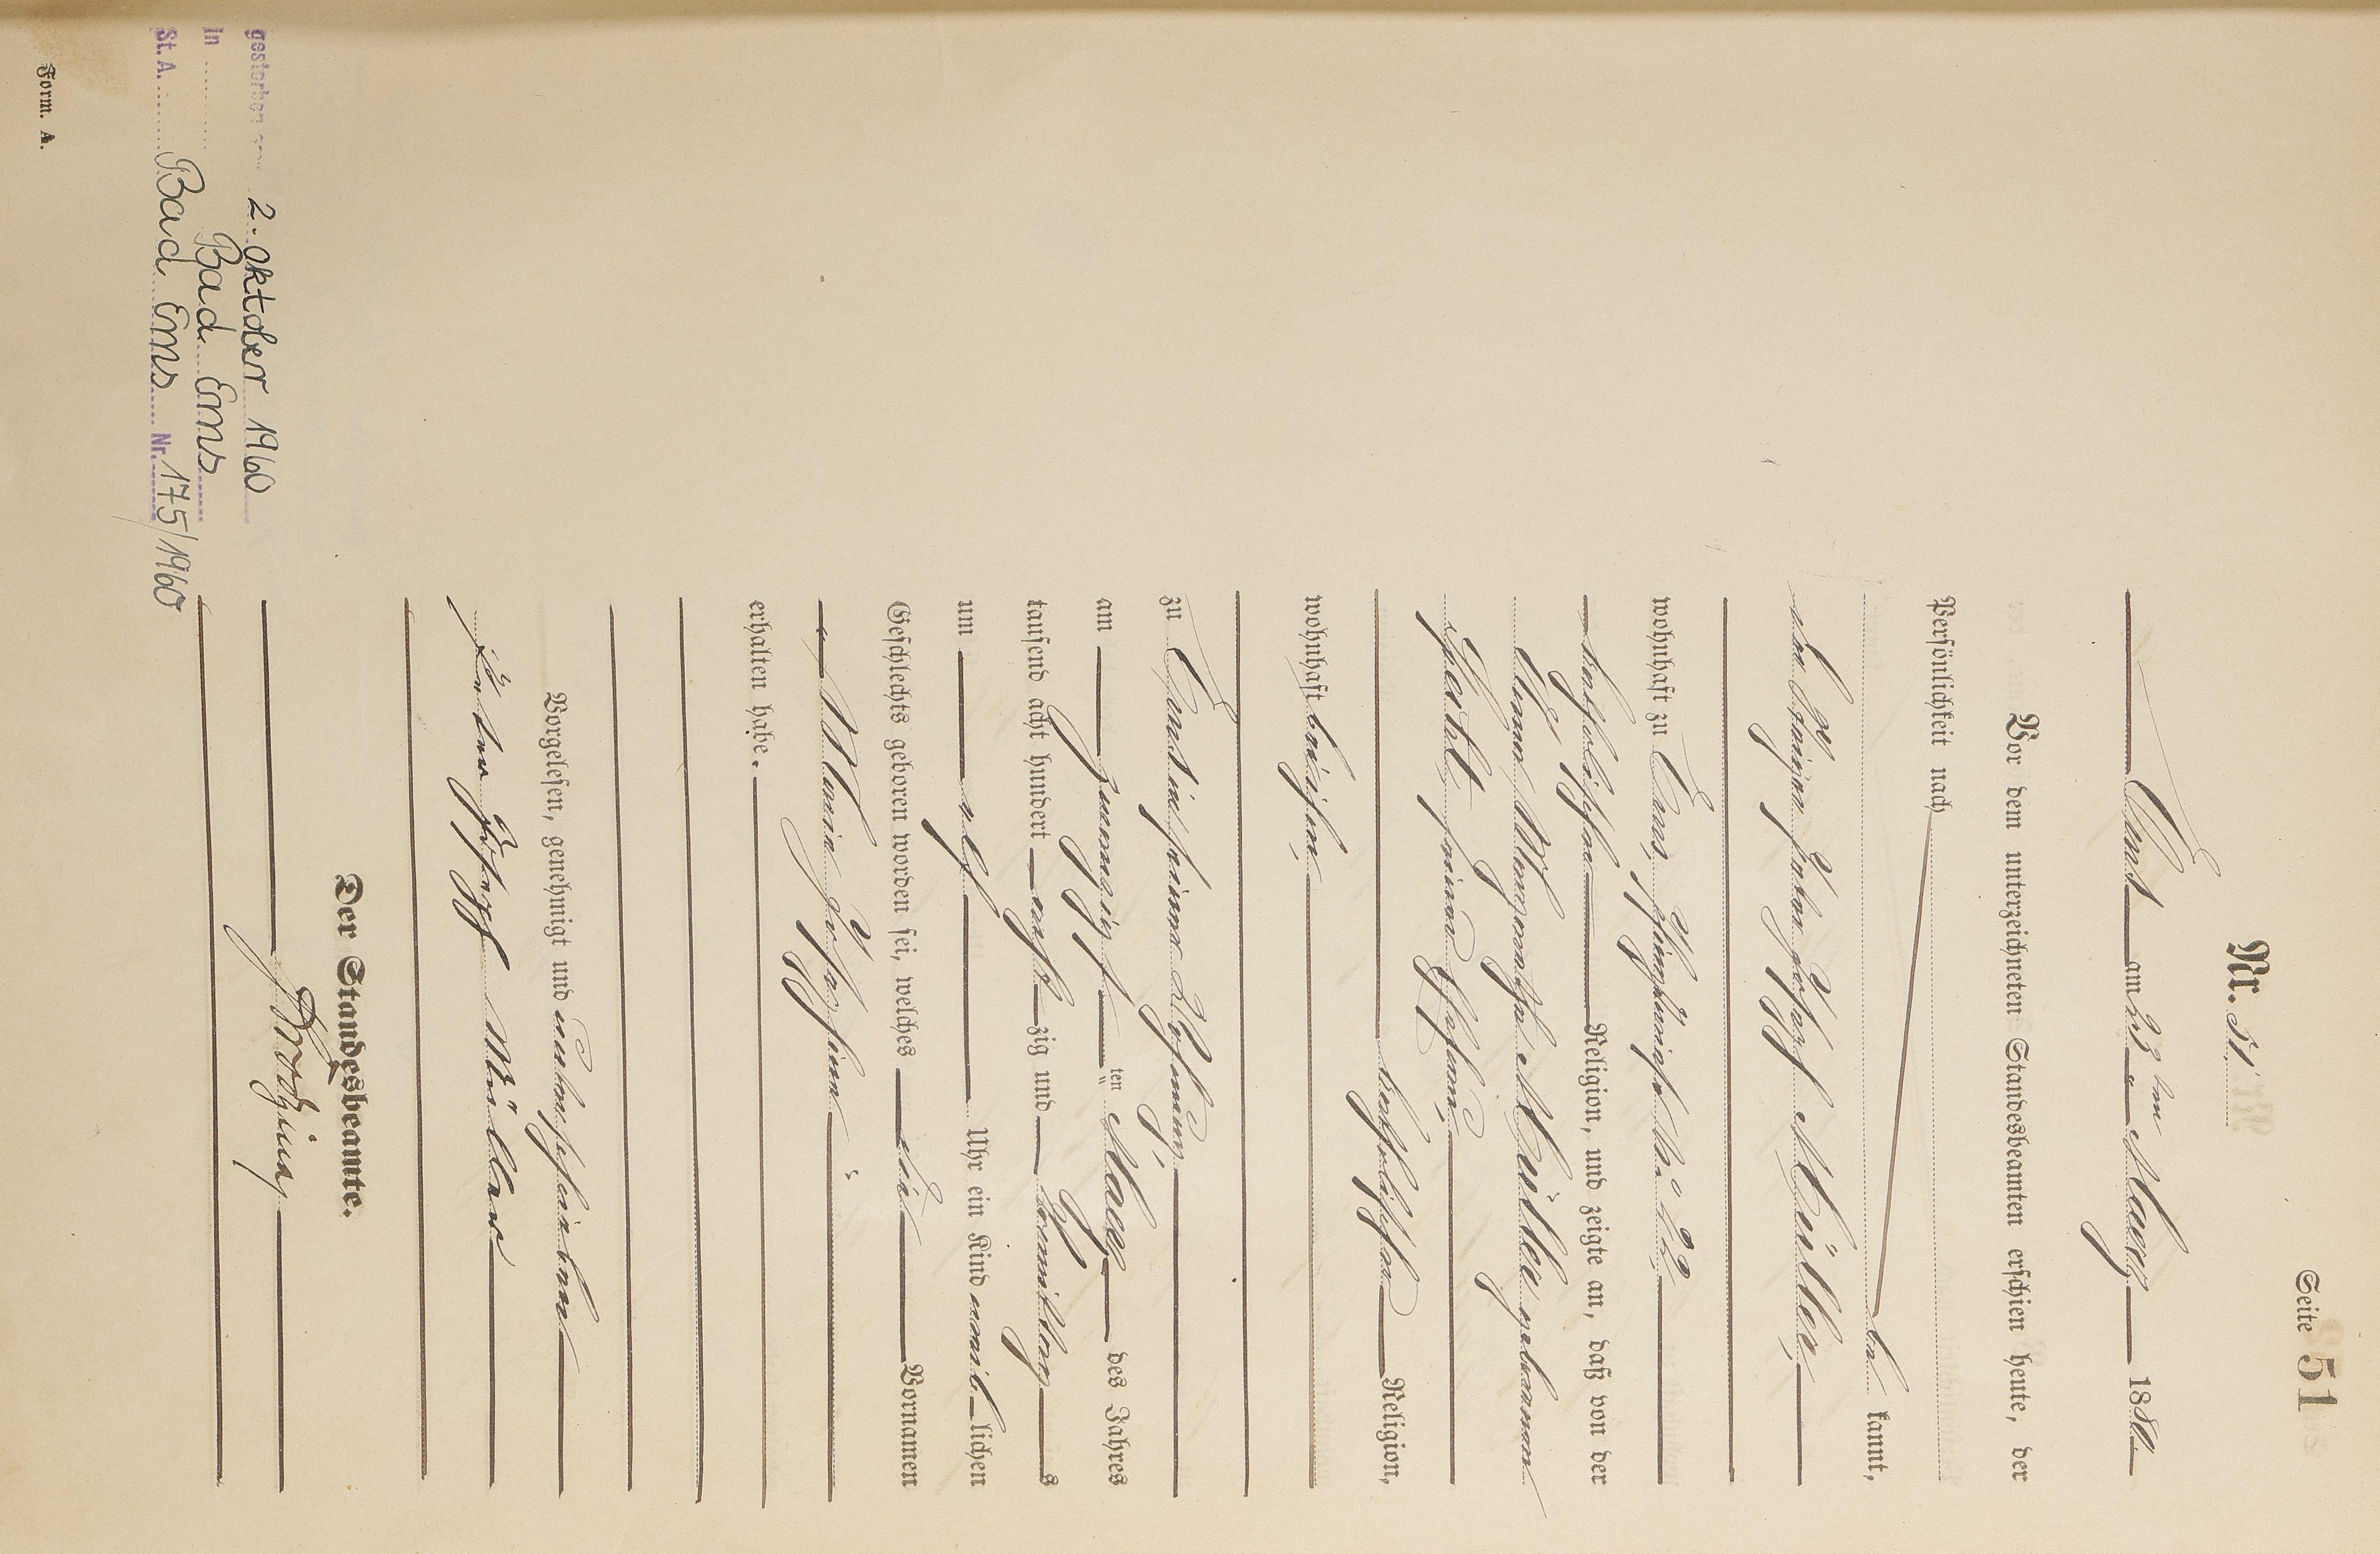 Seite 51
Nr. 51.
Ems am 23ten März 1880.
Vor dem unterzeichneten Standesbeamten erschien heute, der
Persönlichkeit nach
be kannt,
der Josef Müller,
wohnhaft zu Ems, No 22,
katholischer Religion, und zeigte an, daß von der
Anna Margarethe Müller geborenen
Specht seiner Ehefrau,
katholischer Religion,
wohnhaft bei ihm,
zu Ems in seiner Wohnung
am zwanzigsten März des Jahres
tausend acht hundert achtzig und Vormittags
um elf Uhr ein Kind weiblichen
Geschlechts geboren worden sei, welches die Vornamen
Maria Josephine
erhalten habe.
Vorgelesen, genehmigt und unterschrieben
Josef Müller
Der Standesbeamte.
gestorben am 2. Oktober 1960
in Bad Ems
St. A. Bad Ems Nr. 175/1960
Form. A.